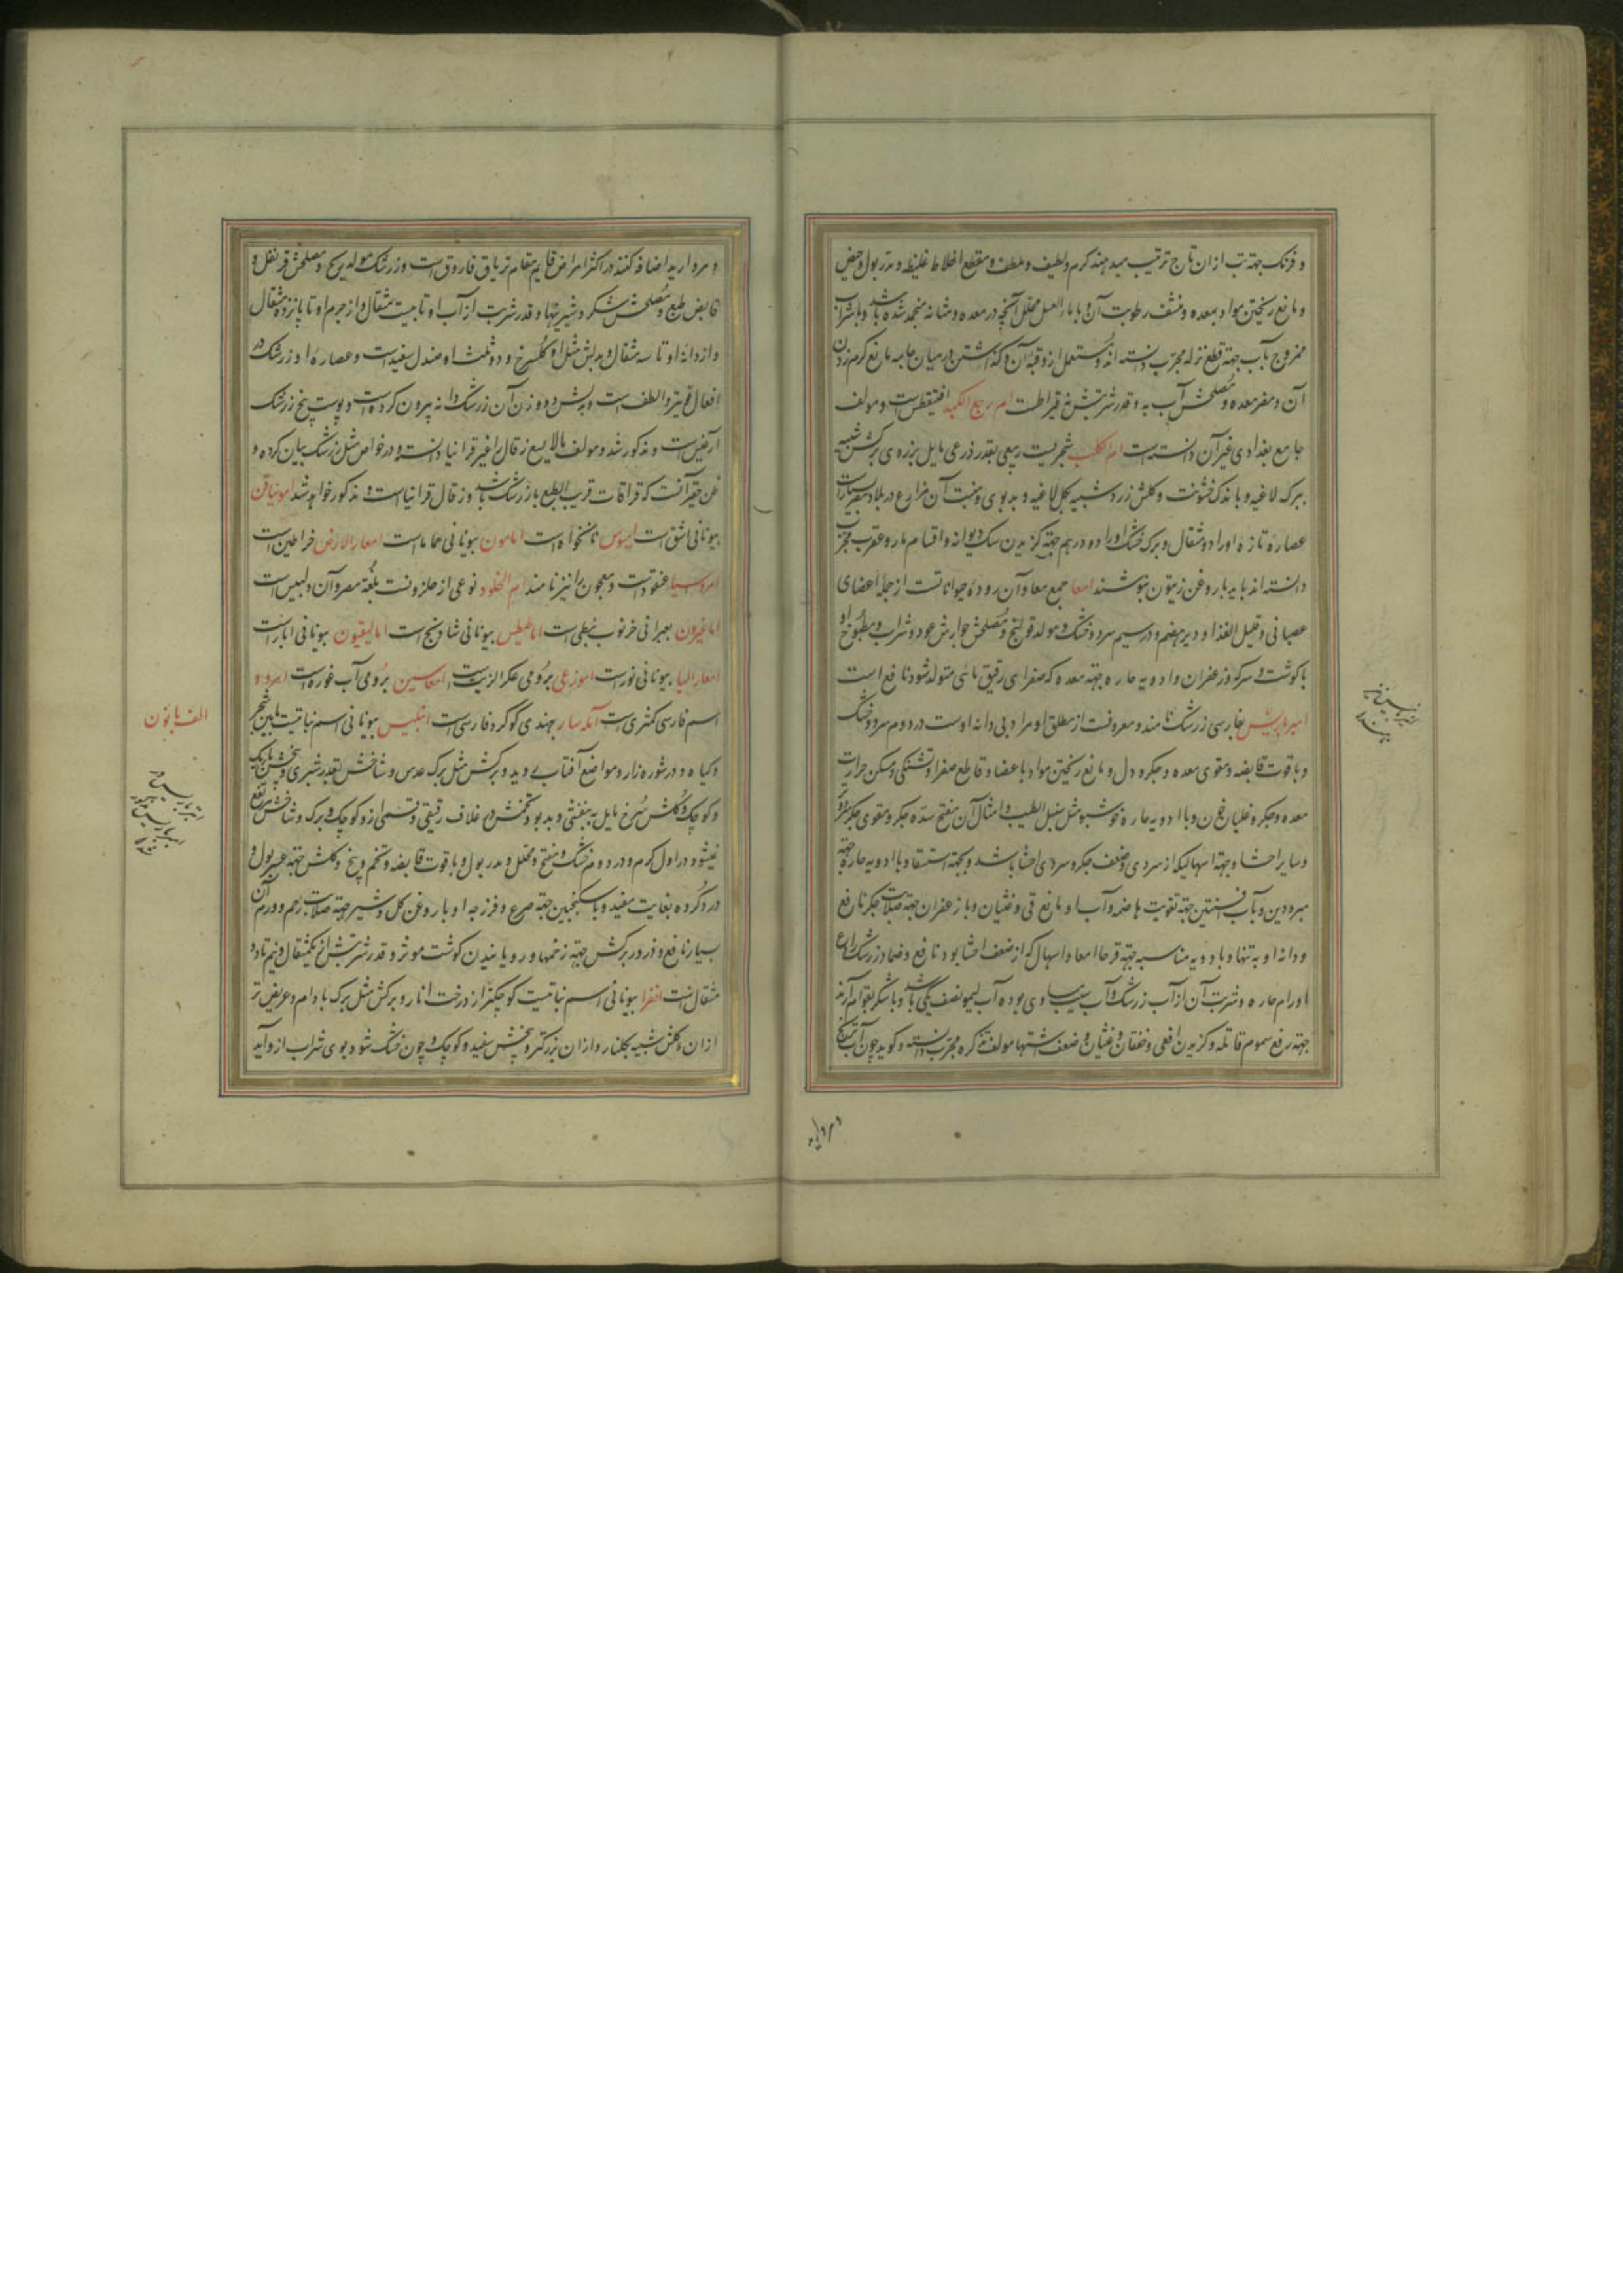 و فرنک جهة تب ازان تاج ترتیب میدهند کرم و لطیف و ملطف و مقطع اخلاط غلیظه و مدر بول و حیض
و مانع ریختن مواد بمعده و منشف رطوبت آن و با ماء العسل محلل آنچه در معده و مثانه منجمد شده باشد و با شراب
ممزوج بآب جهة قطع نزله مجرّب دانسته اند و مستعمل ازو قبّه آن و کذاشتن در میان جامه مانع کرم زدن
آن و مضر معده و مصلحش آب به و قدر شربتش پنج قیراطست ام وجع الکبد افتیقطس است و مولف
جامع بغدادی غیر آن دانسته است ام کلب شجریست ربیعی بقدر ذرعی مایل بزردی برکش شبیه
ببرک لاغیه و با اندک خشونت و کلش زرد شبیه بکل لاغیه و بدبوی و منبت آن مزارع در بلاد مصر
عصاره تازه او را دو مثقال و برک خشک او را دو درهم جهة کزیدن سک دیوانه و اقسام مار و عقرب مجرب
دانسته اند باید با روغن زیتون بنوشند امعا جمع معا و آن روده حیواناتست از جمله اعضای
عصبانی و قلیل الغذا و دیر هضم و در سیم سرد و خشک و مولد قولنج و مصلحش جوارش عود و شراب و مطبوخ او
با کوشت و سرکه و زعفران و ادویه حاره جهة معده که صفرای رقیق مائی متولد شود نافع است
امبرباریس بفارسی زرشک نامند و معروفست از مطلق او مراد بی دانه اوست در دوم سرد و خشک
و با قوت قابضه و مقوی معده و جکر و دل و مانع ریختن مواد باعضا و قاطع صفرا و تشنکی و مسکن حرارت
معده و جکر و غلیان خون و با ادویه حاره خوشبو مثل سنبل الطیب و امثال آن مفتح سدّه جکر و مقوی جکر سرد
و سایر احشا و جهة اسهالیکه از سردی و ضعف جکر و سردی احشا باشد و بجهة استسقا و با ادویه حاره جهة
مبرودین و با آب افسنتین جهة تقویت هاضمه و آب او مانع قی و غثیان و با زعفران جهة صلابت جکر نافع
و دانه او به تنها و با ادویه مناسبه جهة قرحه امعا و اسهال که از ضعف احشا بود نافع و ضماد زرشک رادع
اورام حاره و شربت آن از آب زرشک و آب سیب مساوی بوده آب لیمو نصف یکی باشد و با شکر بقوام آرند
جهة رفع سموم قاتله و کزیدن افعی و خفقان و غثیان و ضعف اشتها مولف تذکره مجرّب دانسته و کوید چون آب ترنج
و مروارید
و مروارید اضافه کنند در اکثر امراض قایم مقام تریاق فاروق است و زرشک مولد ریح و مصلحش قرنفل و
قابض طبع و مصلحش شکر و شیرینیها و قدر شربت از آب او تا بیست مثقال و از جرم او تا پانزده مثقال
و از دانه او تا سه مثقال و بدلش مثل او کلسرخ و دو ثلث او صندل سفید است و عصاره او زرشک در
افعال قویتر و الطف است و بدلش دو وزن آن زرشک دانه بیرون کرده است و پوست بیخ زرشک
آرغیس است و مذکور شد و مولف مالایسع زقال را غیر قرانیا دانسته و در خواص مثل زرشک بیان کرده و
ظن حقیر آنست که قراقات قریب الطبع با زرشک باشد و زقال قرانیا است و مذکور خواهد شد امونیاقن
بیونانی اشق است امیوس نانخواه است امامون بیونانی حماما است امعار الارض خراطین است
امروسیا عنقودست و معجون را نیز نامند ام الخلود نوعی از حلزونست بلغة مصر و آن دلبیس است
اماغیرون بعبرانی خرنوب نبطی است اماطیطس بیونانی شادنج است امالیغیون بیونانی ابار است
امعار الیا بیونانی نوراست اموزغی برومی عکر الزیت است امعاسین برومی آب غوره است امرود
اسم فارسی کمثری است آمله سار بهندی کوکرد فارسی است انبلیس بیونانی اسم نباتیست مابین شجر
و کیاه و در شوره زار و مواضع آفتاب روید و برکش مثل برک عدس و شاخش بقدر شبری و بیخش باریک
و کوچک و کلش سرخ مایل به بنفشی و بدبو و تخمش در غلاف رقیقی و قسمی ازو کوچک برک و شاخش مرتفع
نمیشود در اول کرم و در دوم خشک و مفتح و محلل و مدر بول و با قوت قابضه و تخم و بیخ و کلش جهة عسر بول و
درد کرده بغایت مفید و با سکنجبین جهة صرع و فرزجه او با روغن کل و شیر جهة صلابت رحم و ورم آن
بسیار نافع و ذرور برکش جهة زخمها و رویانیدن کوشت موثر و قدر شربتش از یکمثقال و نیم تا دو
مثقال است انفرا بیونانی اسم نباتیست کوچکتر از درخت انار و برکش مثل برک بادام و عریض تر
ازان و کلش شبیه بکلنار و ازان بزرکتر و بیخش سفید و کوچک و چون خشک شود بوی شراب ازو آید
الف با نون